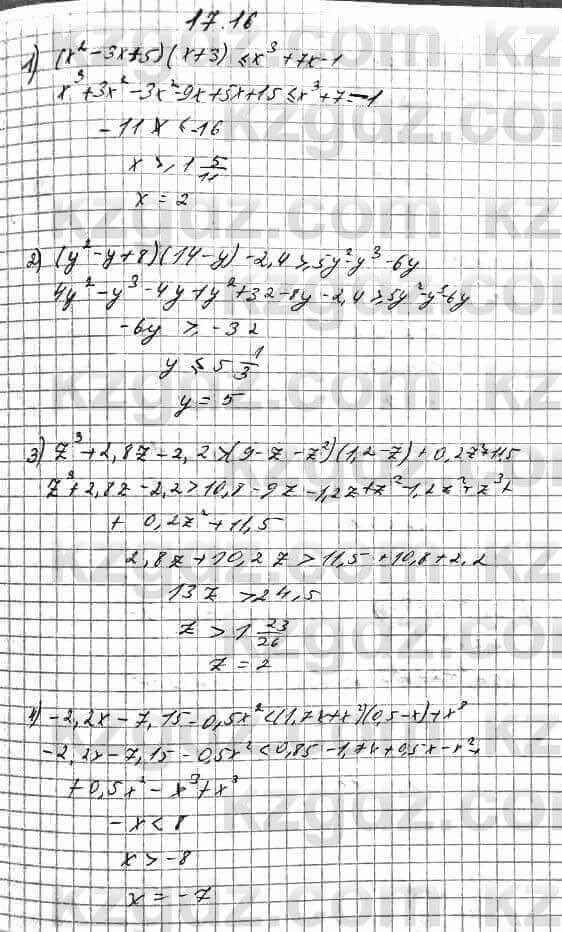 17.16
1) (x² - 3x + 5)(x + 3) ≤ x³ + 7x - 1
x³ + 3x² - 3x² - 9x + 5x + 15 ≤ x³ + 7 = -1
-11x < -16
x >, 1 5/11
x = 2
2) (y² - y + 8)(14 - y) - 2,4 ≥ 5y² - y³ - 6y
4y² - y³ - 4y + y² + 32 - 8y - 2,4 ≥ 5y² - y³ - 6y
-6y ≥ -32
y ≤ 5 1/3
y = 5
3) z³ + 2,8z - 2,2 > (9 - z - z²)(1,2 - z) + 0,2z² + 11,5
z³ + 2,8z - 2,2 > 10,8 - 9z - 1,2z + z² - 1,2z² + z³ +
+ 0,2z² + 11,5
2,8z + 10,2z > 11,5 + 10,8 + 2,2
13z > 24,5
z > 1 23/26
z = 2
4) -2,2x - 7,15 - 0,5x² < (1,7x + x²)(0,5 - x) + x³
-2,2x - 7,15 - 0,5x² < 0,85 - 1,7x + 0,5x - x² +
+ 0,5x² - x³ + x³
-x < 8
x > -8
x = -7
kzgdz.com